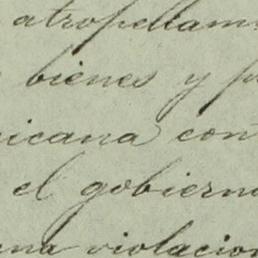 atropellam
bienes y p
icana con
el gobierno
una violacion